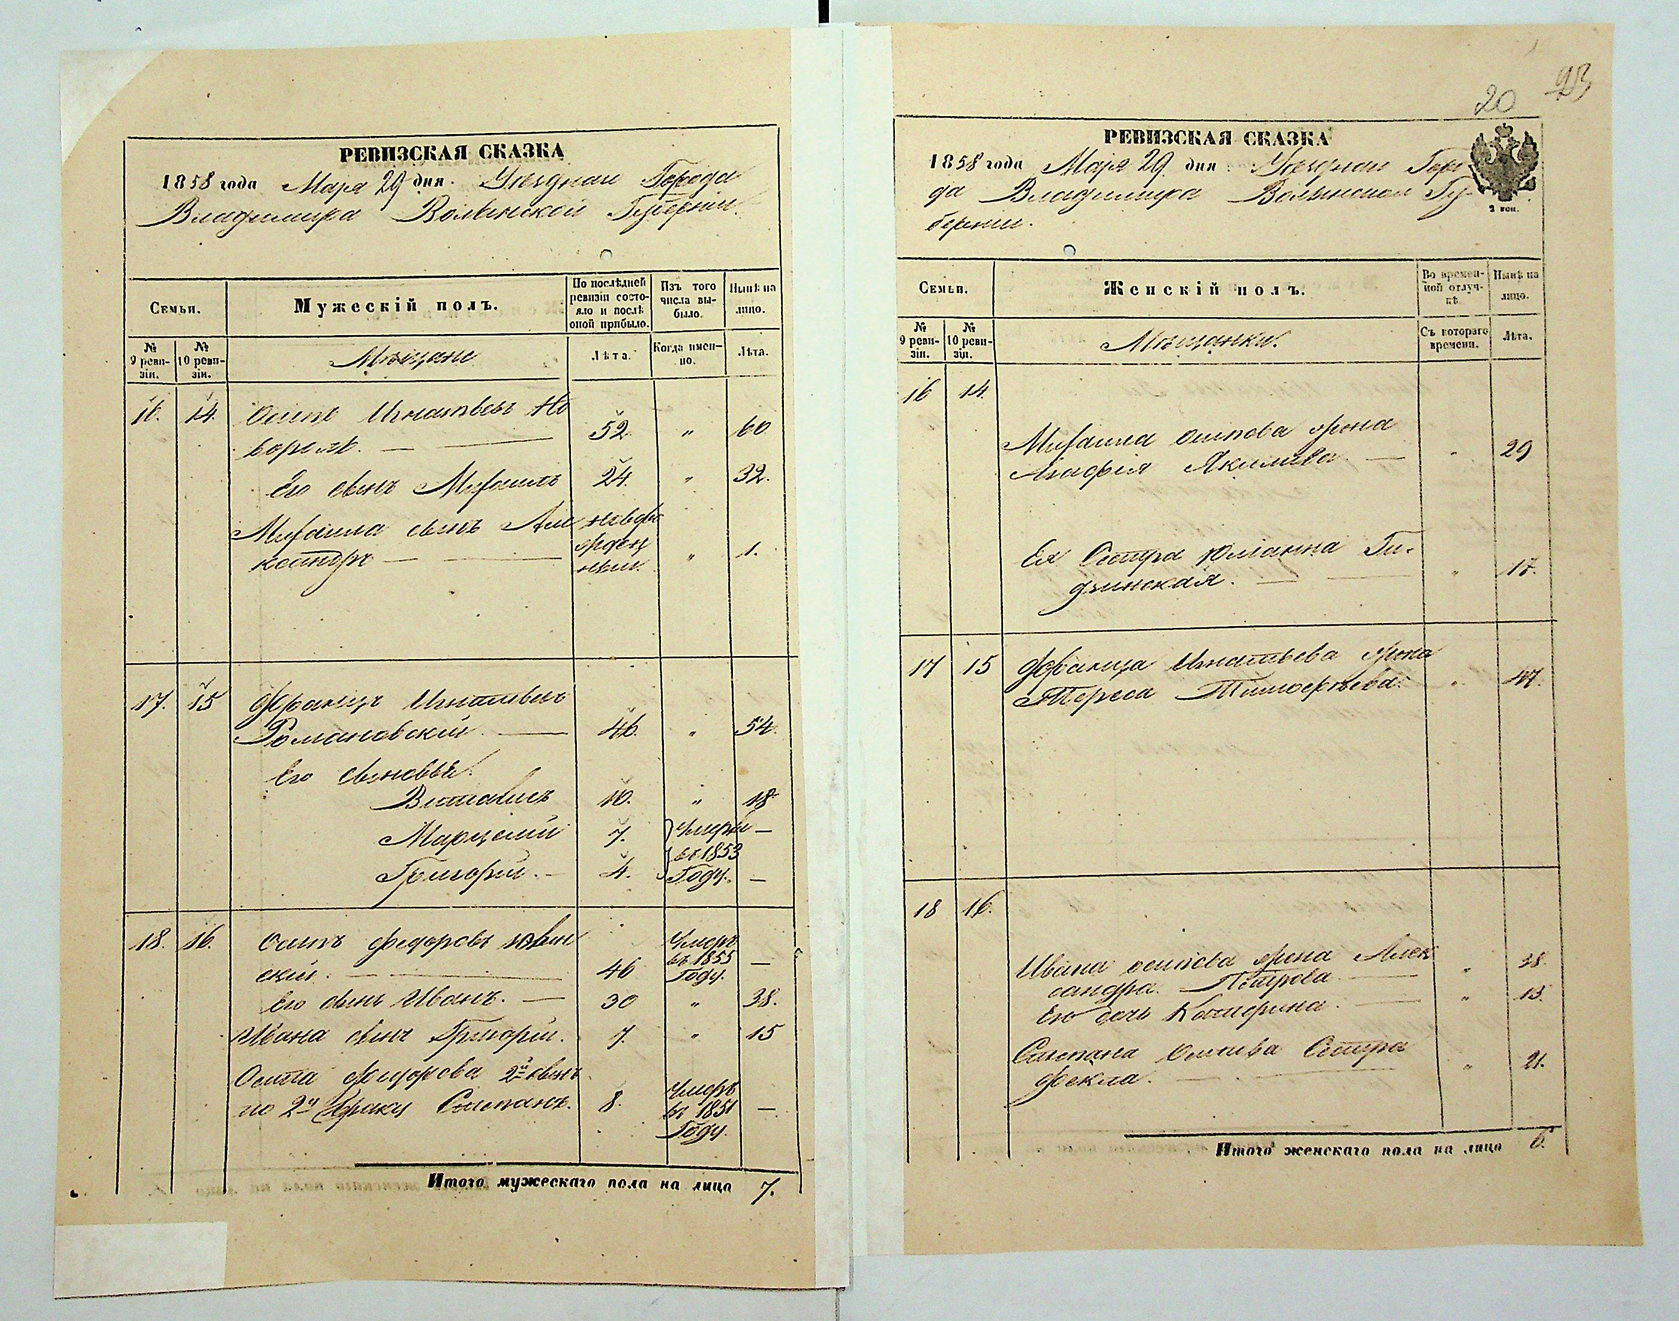 РЕВИЗСКАЯ СКАЗКА
1858 года Мар̃я 29 дня. Уѣзднаи Города
Владимира Волынской Губерніи.
Семьи.
Мужескій полъ.
По послѣдней ревизіи состояло и послѣ оной прибыло.
Изъ того числа выбыло.
Нынѣ на лицо.
№ 9 ревизіи.
№ 10 ревизіи.
Мѣщане
Лѣта.
Когда именно.
Лѣта.
16. 14. Осипъ Игнатьевъ
52. " 60
Его сынъ Михаилъ 24. " 32.
Михаила сынъ
" 1.
17. 15 Францъ Игнатьевъ
Романовскій 46. " 54.
Его сыновья:
10. " 18
Марцелий 7. Умеръ —
въ 1853
Григорій. — 4. Году. —
18. 16. Осипъ Федоровъ
скій. — 46 Умеръ въ 1855 Году. —
Его сынъ Иванъ. — 30 " 38.
Ивана сынъ Григорій. 7. " 15
Осипа Федорова 2й сынъ
по 2му браку Степанъ. 8. Умеръ въ 1851 Году. —
Итого мужескаго пола на лицо 7.
20 93
РЕВИЗСКАЯ СКАЗКА
1858 года Мар̃я 29 дня. Уѣзднаи Горо-
да Владимира Волынской Гу-
берніи.
2 коп.
Семьи.
Женскій полъ.
Во временной отлучкѣ.
Нынѣ на лицо.
№ 9 ревизіи.
№ 10 ревизіи.
Мѣщанки.
Съ котораго времени.
Лѣта.
16 14.
Михаила Осипова жена
Агафія Якимова — " 29
Ея Сестра Юлианна
" 17.
17 15 Франца Игнатьева жена
Тереса " 47.
18 16.
Ивана Осипова жена Алек
сандра Петрова — " 38.
Его дочь Катерина. — " 13.
Степана Осипова Сестра
Фекла. — " 21.
Итого женскаго пола на лицо 6.